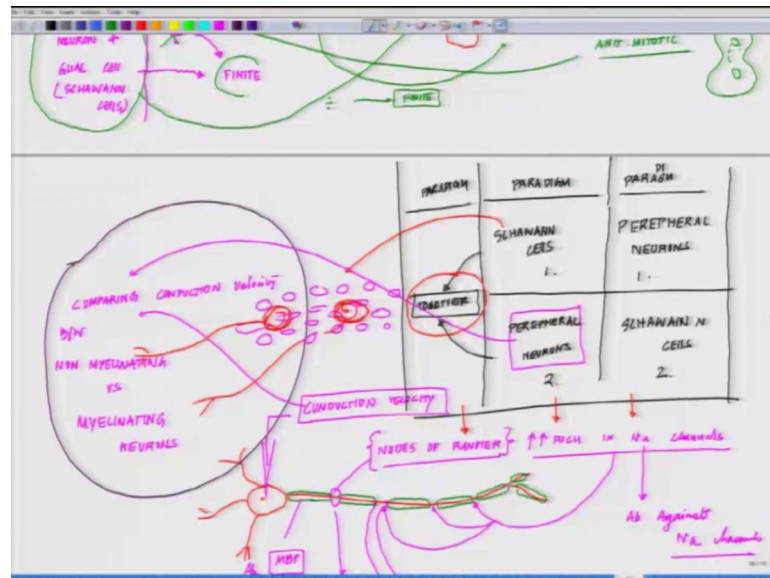 NEURON +
GLIAL CELL
(SCHAWANN
CELLS)
FINITE
FINITE
ANTI-MITOTIC
PARADIGM
PARADIGM
DI
PARAGM
SCHAWANN
CELLS
1.
PEREPHERAL
NEURONS
1.
TOGETHER
PEREPHERAL
NEURONS
2.
SCHAWANN
CELLS
2.
COMPARING CONDUCTION Velocity
B/W
NON MYELINATING
VS
MYELINATING
NEURONS
CONDUCTION VELOCITY
NODES OF RANVIER
↑↑ RICH IN Na channels
Ab Against
Na channels
MBP
Ab